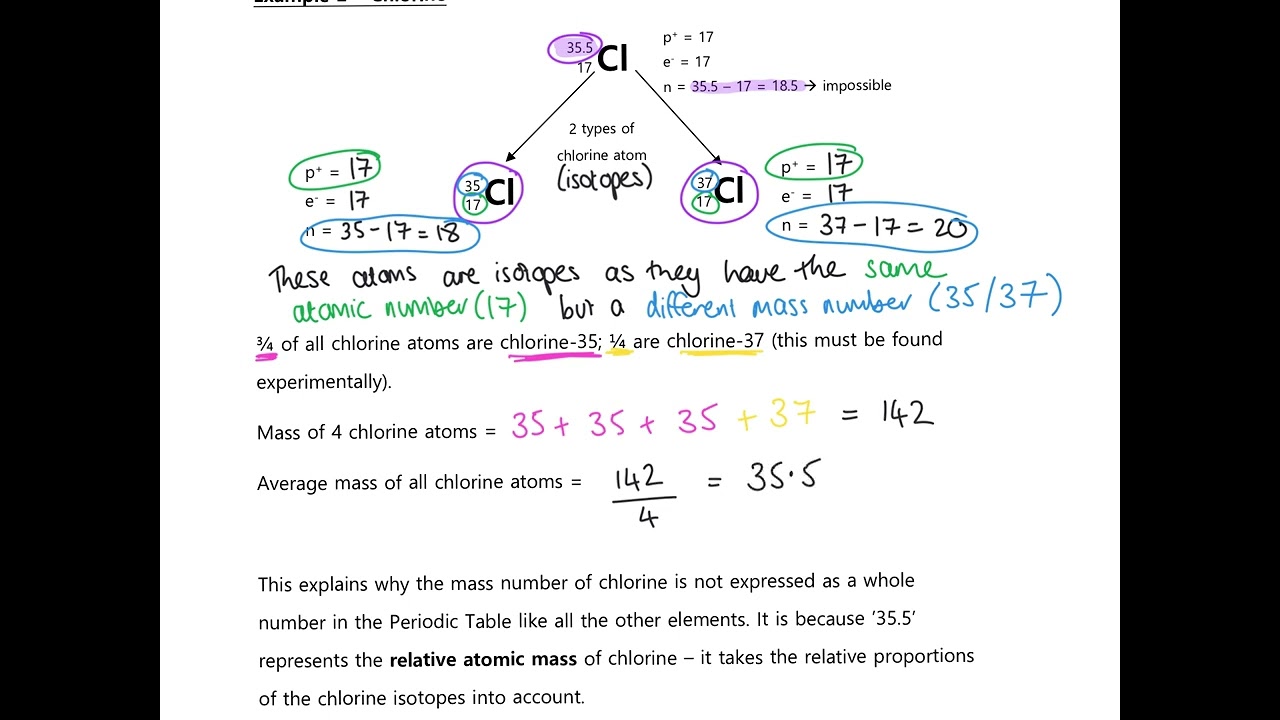 Example 2 – Chlorine
35.5
17 Cl
p⁺ = 17
e⁻ = 17
n = 35.5 – 17 = 18.5 → impossible
2 types of
chlorine atom
(isotopes)
p⁺ = 17
e⁻ = 17
n = 35 – 17 = 18
35
17 Cl
37
17 Cl
p⁺ = 17
e⁻ = 17
n = 37 – 17 = 20
These atoms are isotopes as they have the same
atomic number (17) but a different mass number (35/37)
¾ of all chlorine atoms are chlorine-35; ¼ are chlorine-37 (this must be found
experimentally).
Mass of 4 chlorine atoms = 35 + 35 + 35 + 37 = 142
Average mass of all chlorine atoms = 142/4 = 35.5
This explains why the mass number of chlorine is not expressed as a whole
number in the Periodic Table like all the other elements. It is because '35.5'
represents the relative atomic mass of chlorine – it takes the relative proportions
of the chlorine isotopes into account.